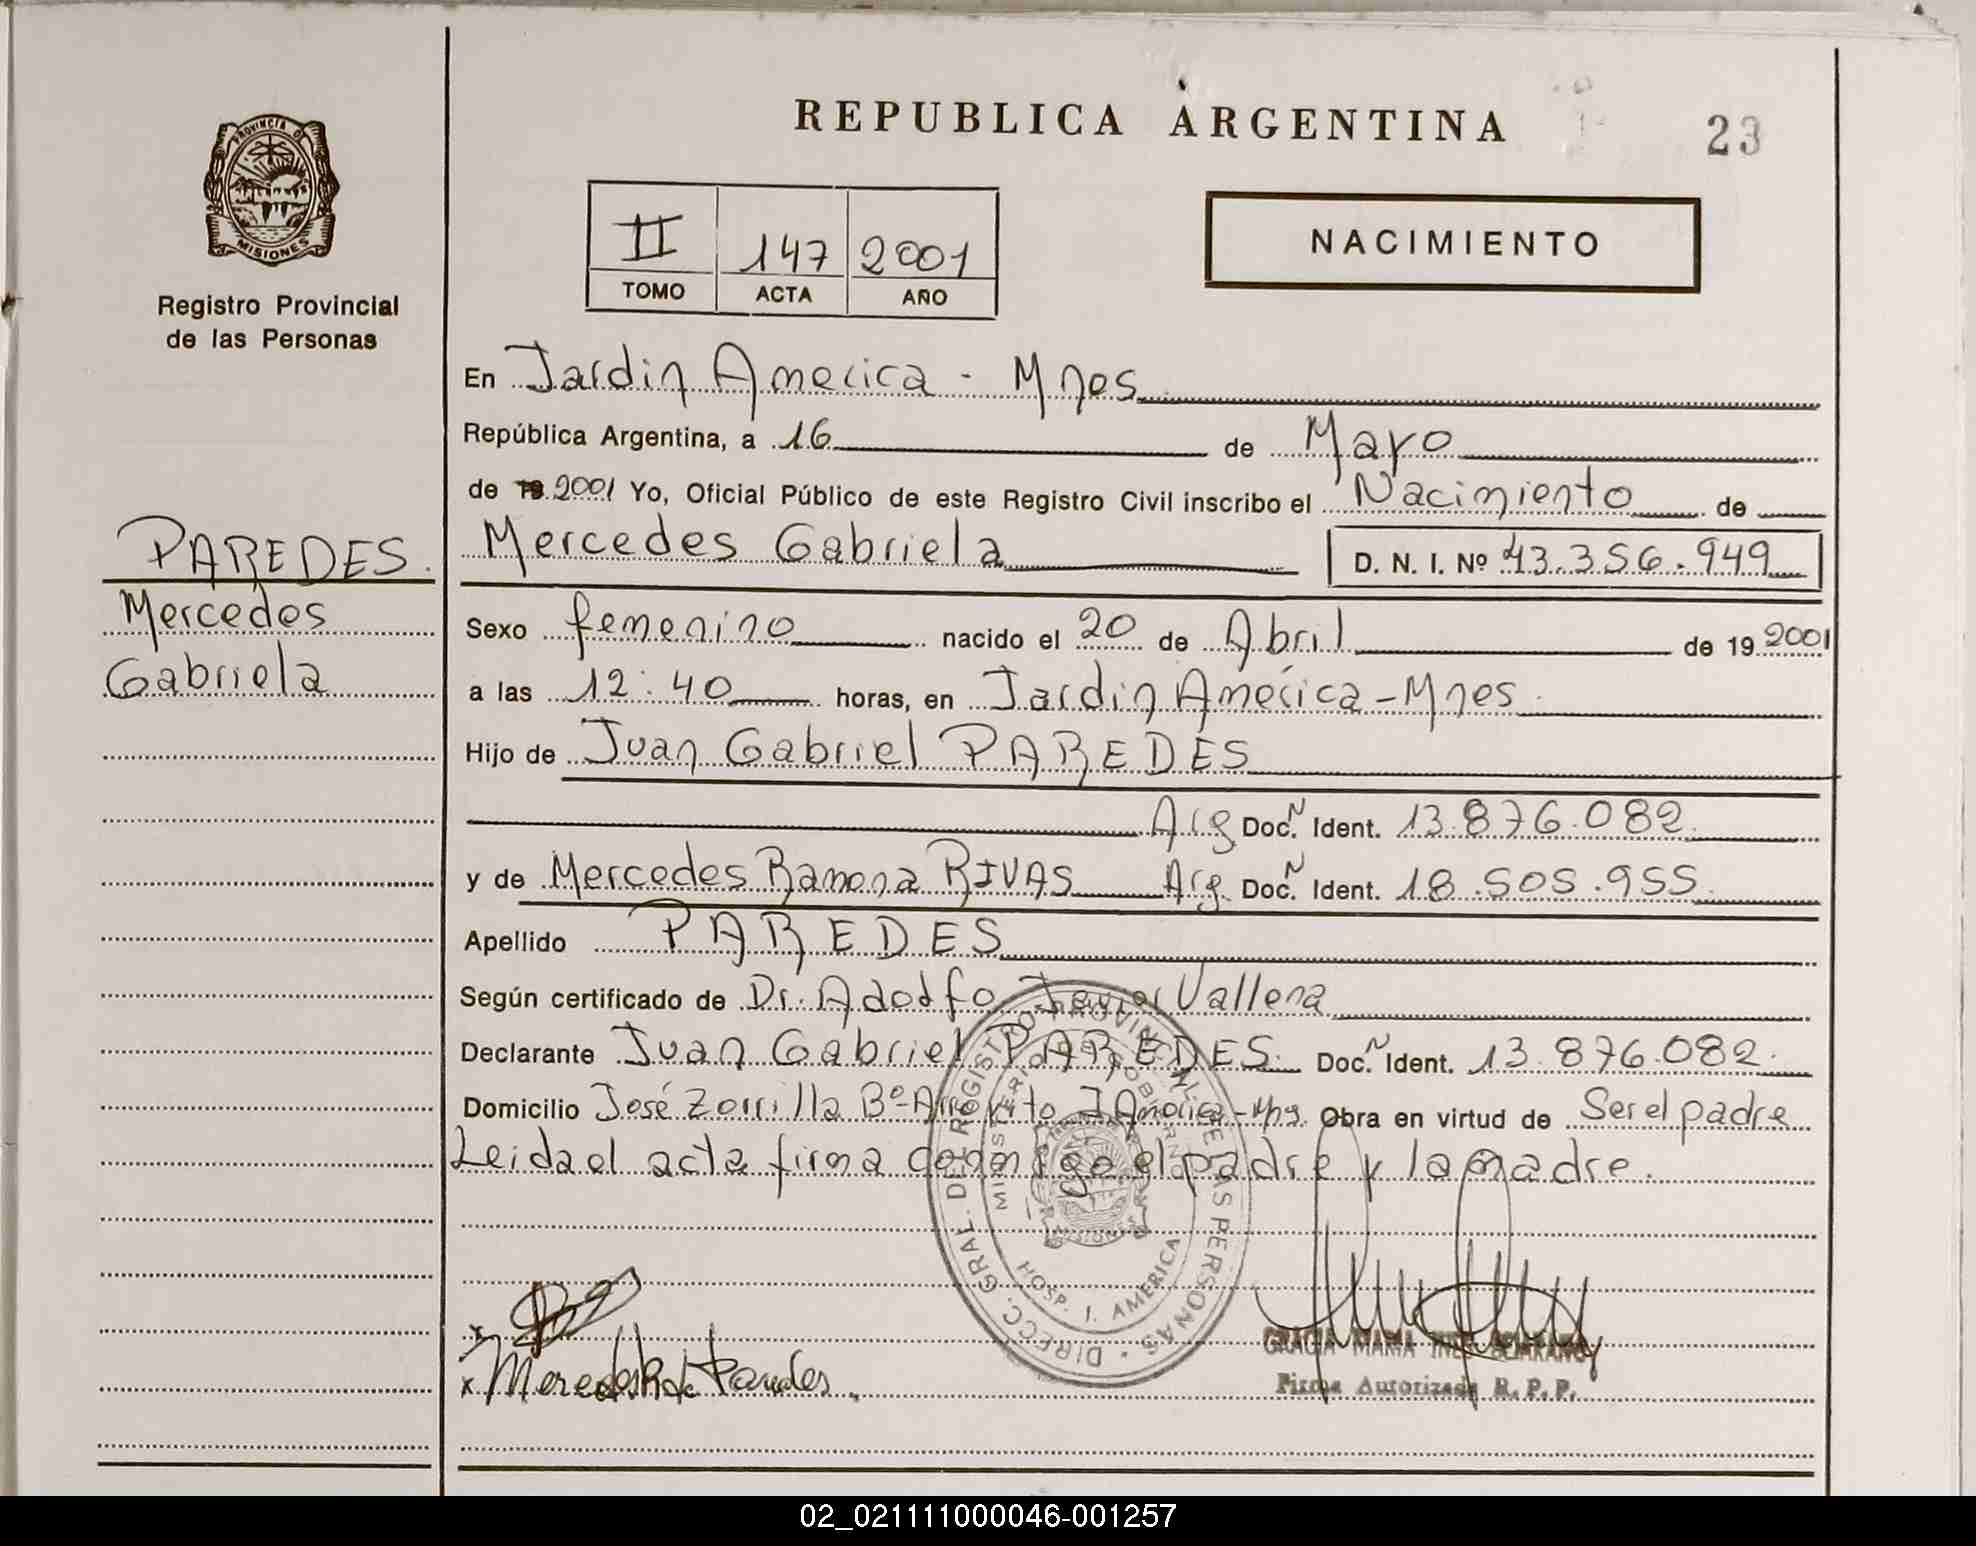 REPUBLICA ARGENTINA
23
PROVINCIA DE
MISIONES
Registro Provincial
de las Personas
II 147 2001
TOMO ACTA AÑO
NACIMIENTO
En Jardin America - Mnes
República Argentina, a 16 de Mayo
de 19 2001 Yo, Oficial Público de este Registro Civil inscribo el Nacimiento de
PAREDES.
Mercedes
Gabriela
Mercedes Gabriela D. N. I. Nº 43.356.949
Sexo femenino nacido el 20 de Abril de 19 2001
a las 12:40 horas, en Jardin America - Mnes.
Hijo de Juan Gabriel PAREDES
Arg Doc. N Ident. 13.876.082.
y de Mercedes Ramona RIVAS Arg. Doc. N Ident. 18.505.955.
Apellido PAREDES
Según certificado de Dr. Adolfo Javier Vallena
Declarante Juan Gabriel PAREDES. Doc. N Ident. 13.876.082.
Domicilio José Zorrilla Bº- J America - Mns. Obra en virtud de Ser el padre
Leida el acta firma conmigo el padre y la madre.
DIRECC. GRAL. DEL REGISTRO PROVINCIAL DE LAS PERSONAS
MINISTERIO DE GOBIERNO
HOSP. J. AMERICA
MISIONES
x
x Mercedes R de Paredes.
GRACIA MARIA INES
Firma Autorizada R. P. P.
02_021111000046-001257